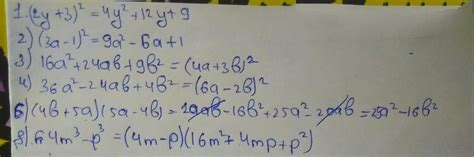 1. (2y+3)²=4y²+12y+9
2) (3a-1)²=9a²-6a+1
3) 16a²+24ab+9b²=(4a+3b)²
4) 36a²-24ab+4b²=(6a-2b)²
5) (4b+5a)(5a-4b)=20ab-16b²+25a²-20ab=25a²-16b²
8) 64m³-p³=(4m-p)(16m²+4mp+p²)